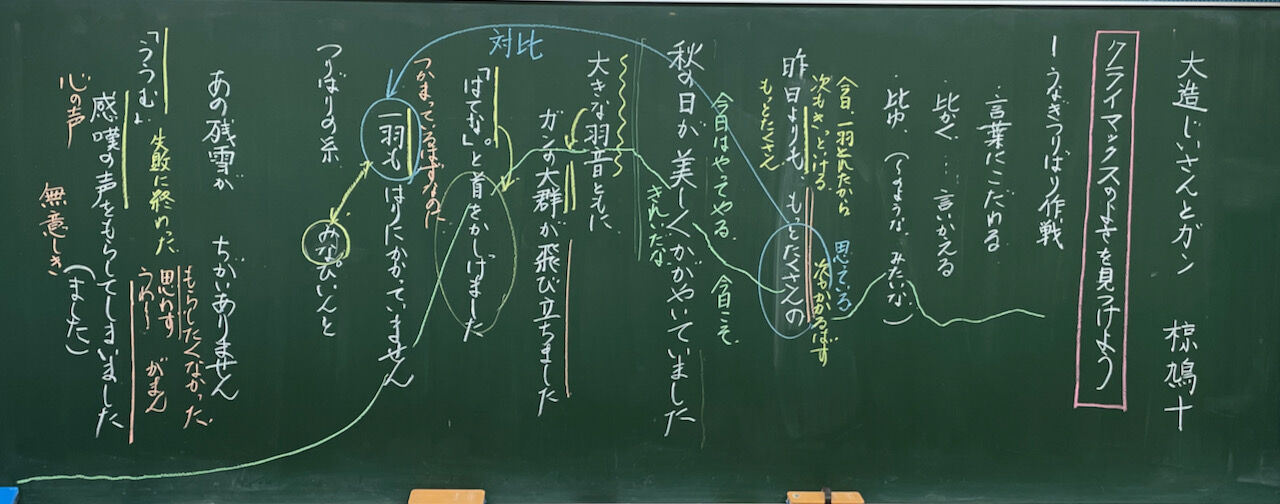 大造じいさんとガン　椋鳩十
クライマックスのよさを見つけよう
ーうなぎつりばり作戦
・言葉にこだわる
・比かく…言いかえる
・比ゆ（〜のような、みたいな）
今日、一羽とれたから
次もきっといける
もっとたくさん
思えている
次もかかるはず
昨日よりも、もっとたくさんの
今日はやってやる、今日こそ、
秋の日が美しくかがやいていました
きれいだな
大きな羽音とともに
ガンの大群が飛び立ちました
対比
「はてな。」と首をかしげました
つかまっているはずなのに
一羽もはりにかかっていません
つりばりの糸　みなぴいんと
あの残雪が　ちがいありません
「ううむ」
失敗に終わった
もらしたくなかった
思わず　がまん
うわー
感嘆の声をもらしてしまいました
心の声
（ました）
無意しき